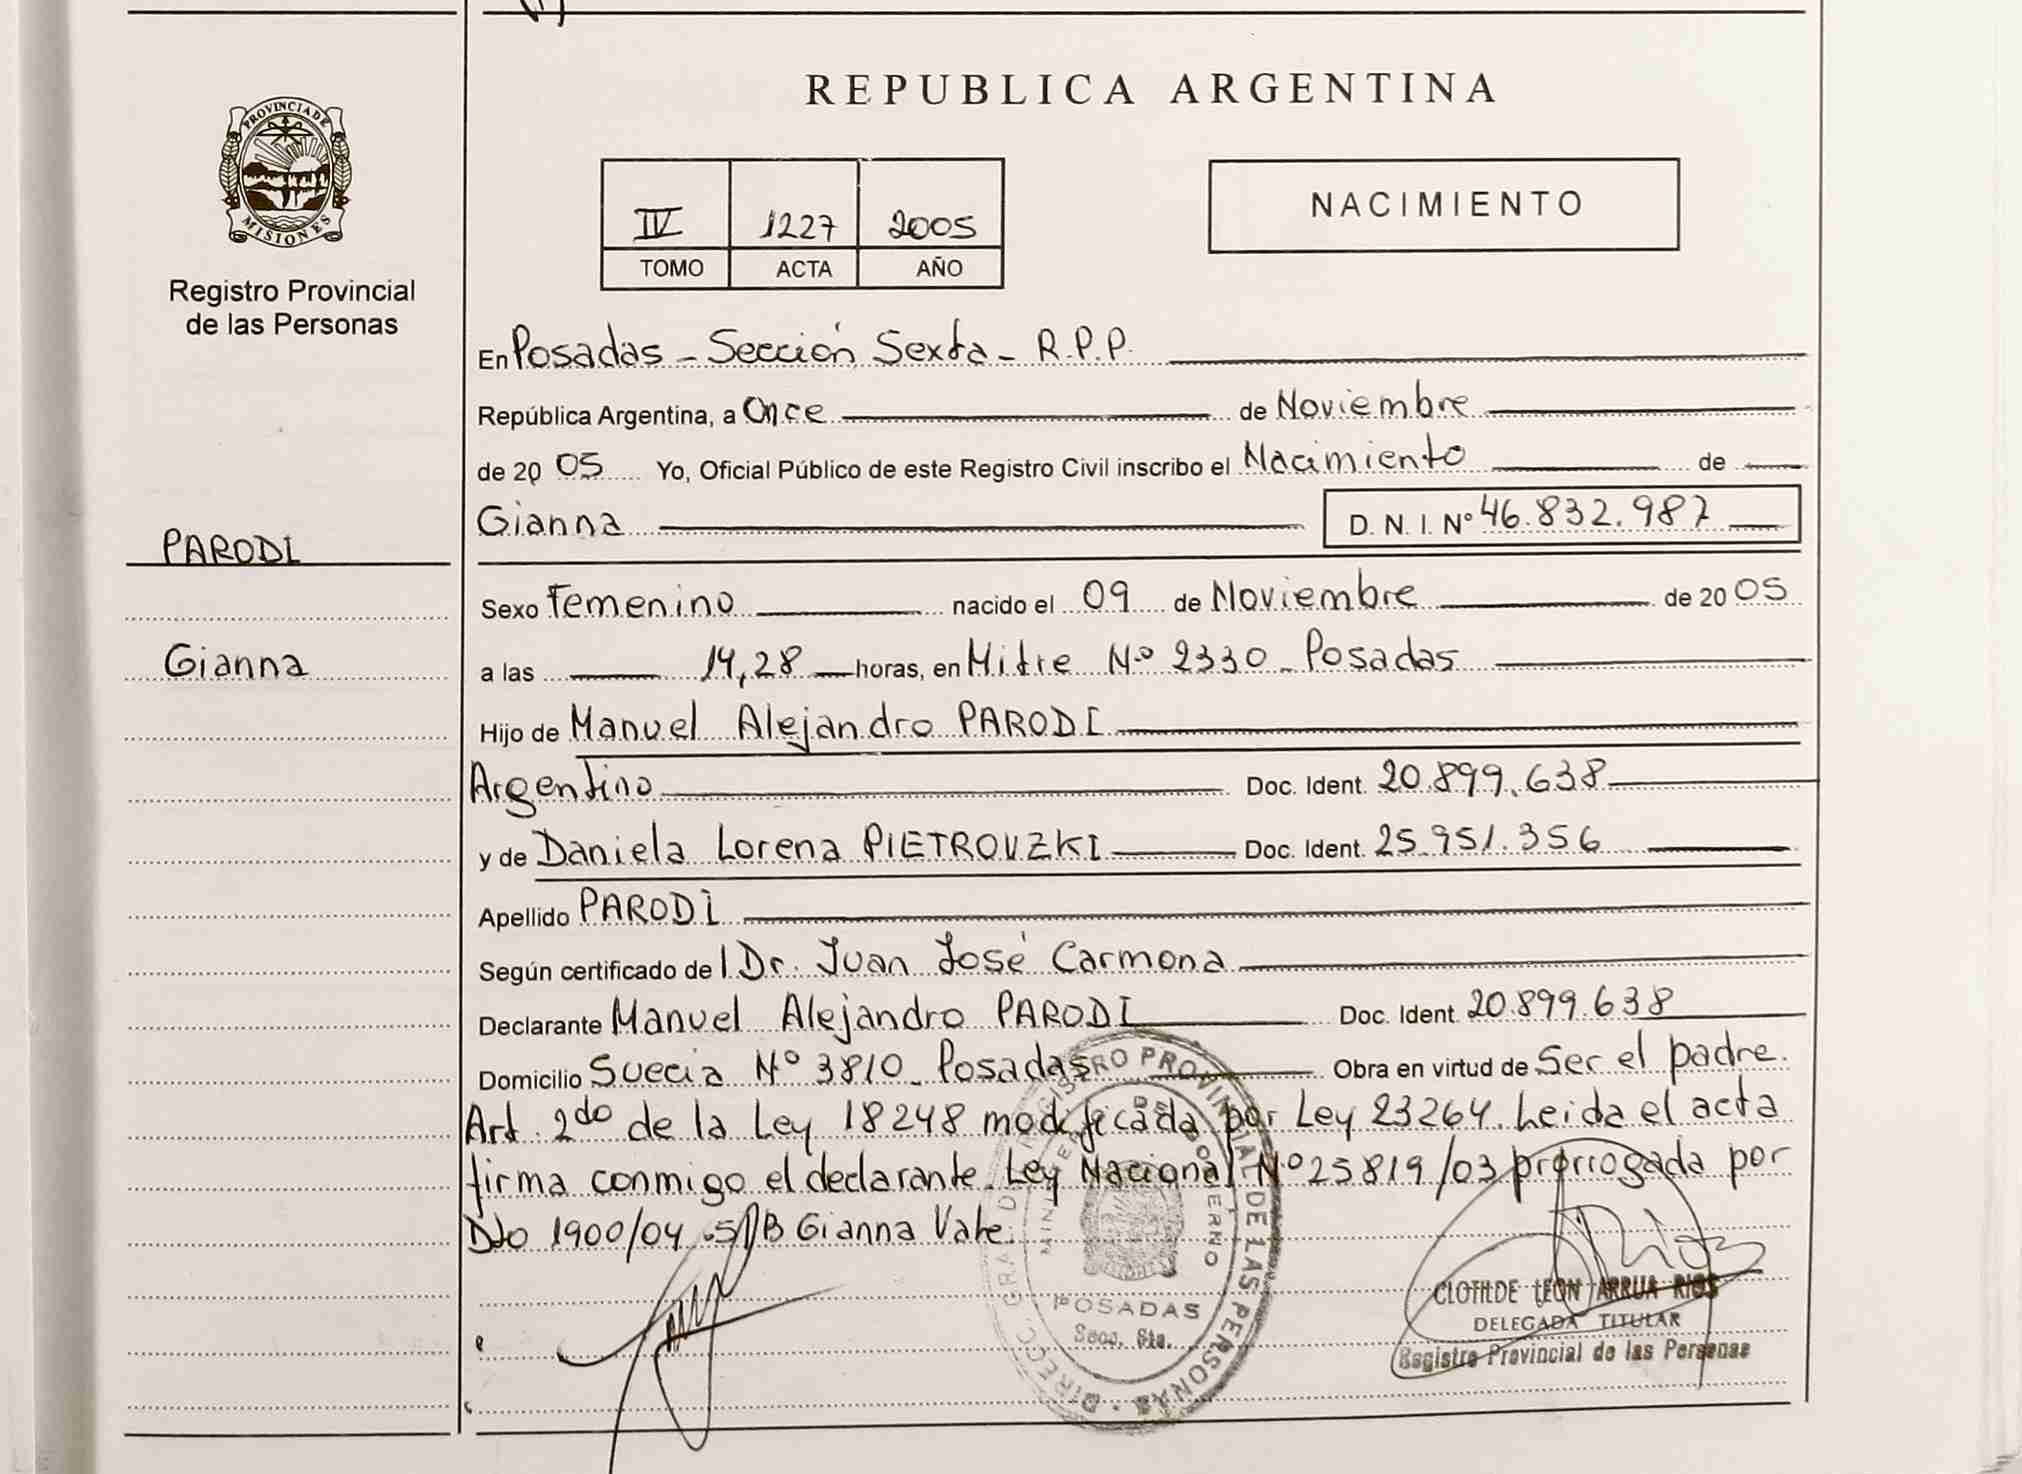 REPUBLICA ARGENTINA
PROVINCIA DE
MISIONES
Registro Provincial
de las Personas
IV 1227 2005
TOMO ACTA AÑO
NACIMIENTO
En Posadas - Sección Sexta - R.P.P.
República Argentina, a Once de Noviembre
de 20 05 Yo, Oficial Público de este Registro Civil inscribo el Nacimiento de
Gianna D. N. I. Nº 46.832.987
PARODI
Sexo Femenino nacido el 09 de Noviembre de 20 05
Gianna
a las 14,28 horas, en Mitre Nº 2330 - Posadas
Hijo de Manuel Alejandro PARODI
Argentino Doc. Ident. 20.899.638
y de Daniela Lorena PIETROVZKI Doc. Ident. 25.951.356
Apellido PARODI
Según certificado del Dr. Juan José Carmona
Declarante Manuel Alejandro PARODI Doc. Ident. 20.899.638
Domicilio Suecia Nº 3810 - Posadas Obra en virtud de Ser el padre.
Art. 2do de la Ley 18248 modificada por Ley 23264. Leida el acta
firma conmigo el declarante. Ley Nacional Nº 25819/03 prorrogada por
Dto 1900/04. S/B Gianna Vale.
DIRECC. GRAL. DEL REGISTRO PROVINCIAL DE LAS PERSONAS
MINISTERIO DE GOBIERNO
POSADAS
Secc. 6ta.
CLOTILDE LEON ARRUA RIOS
DELEGADA TITULAR
Registro Provincial de las Personas